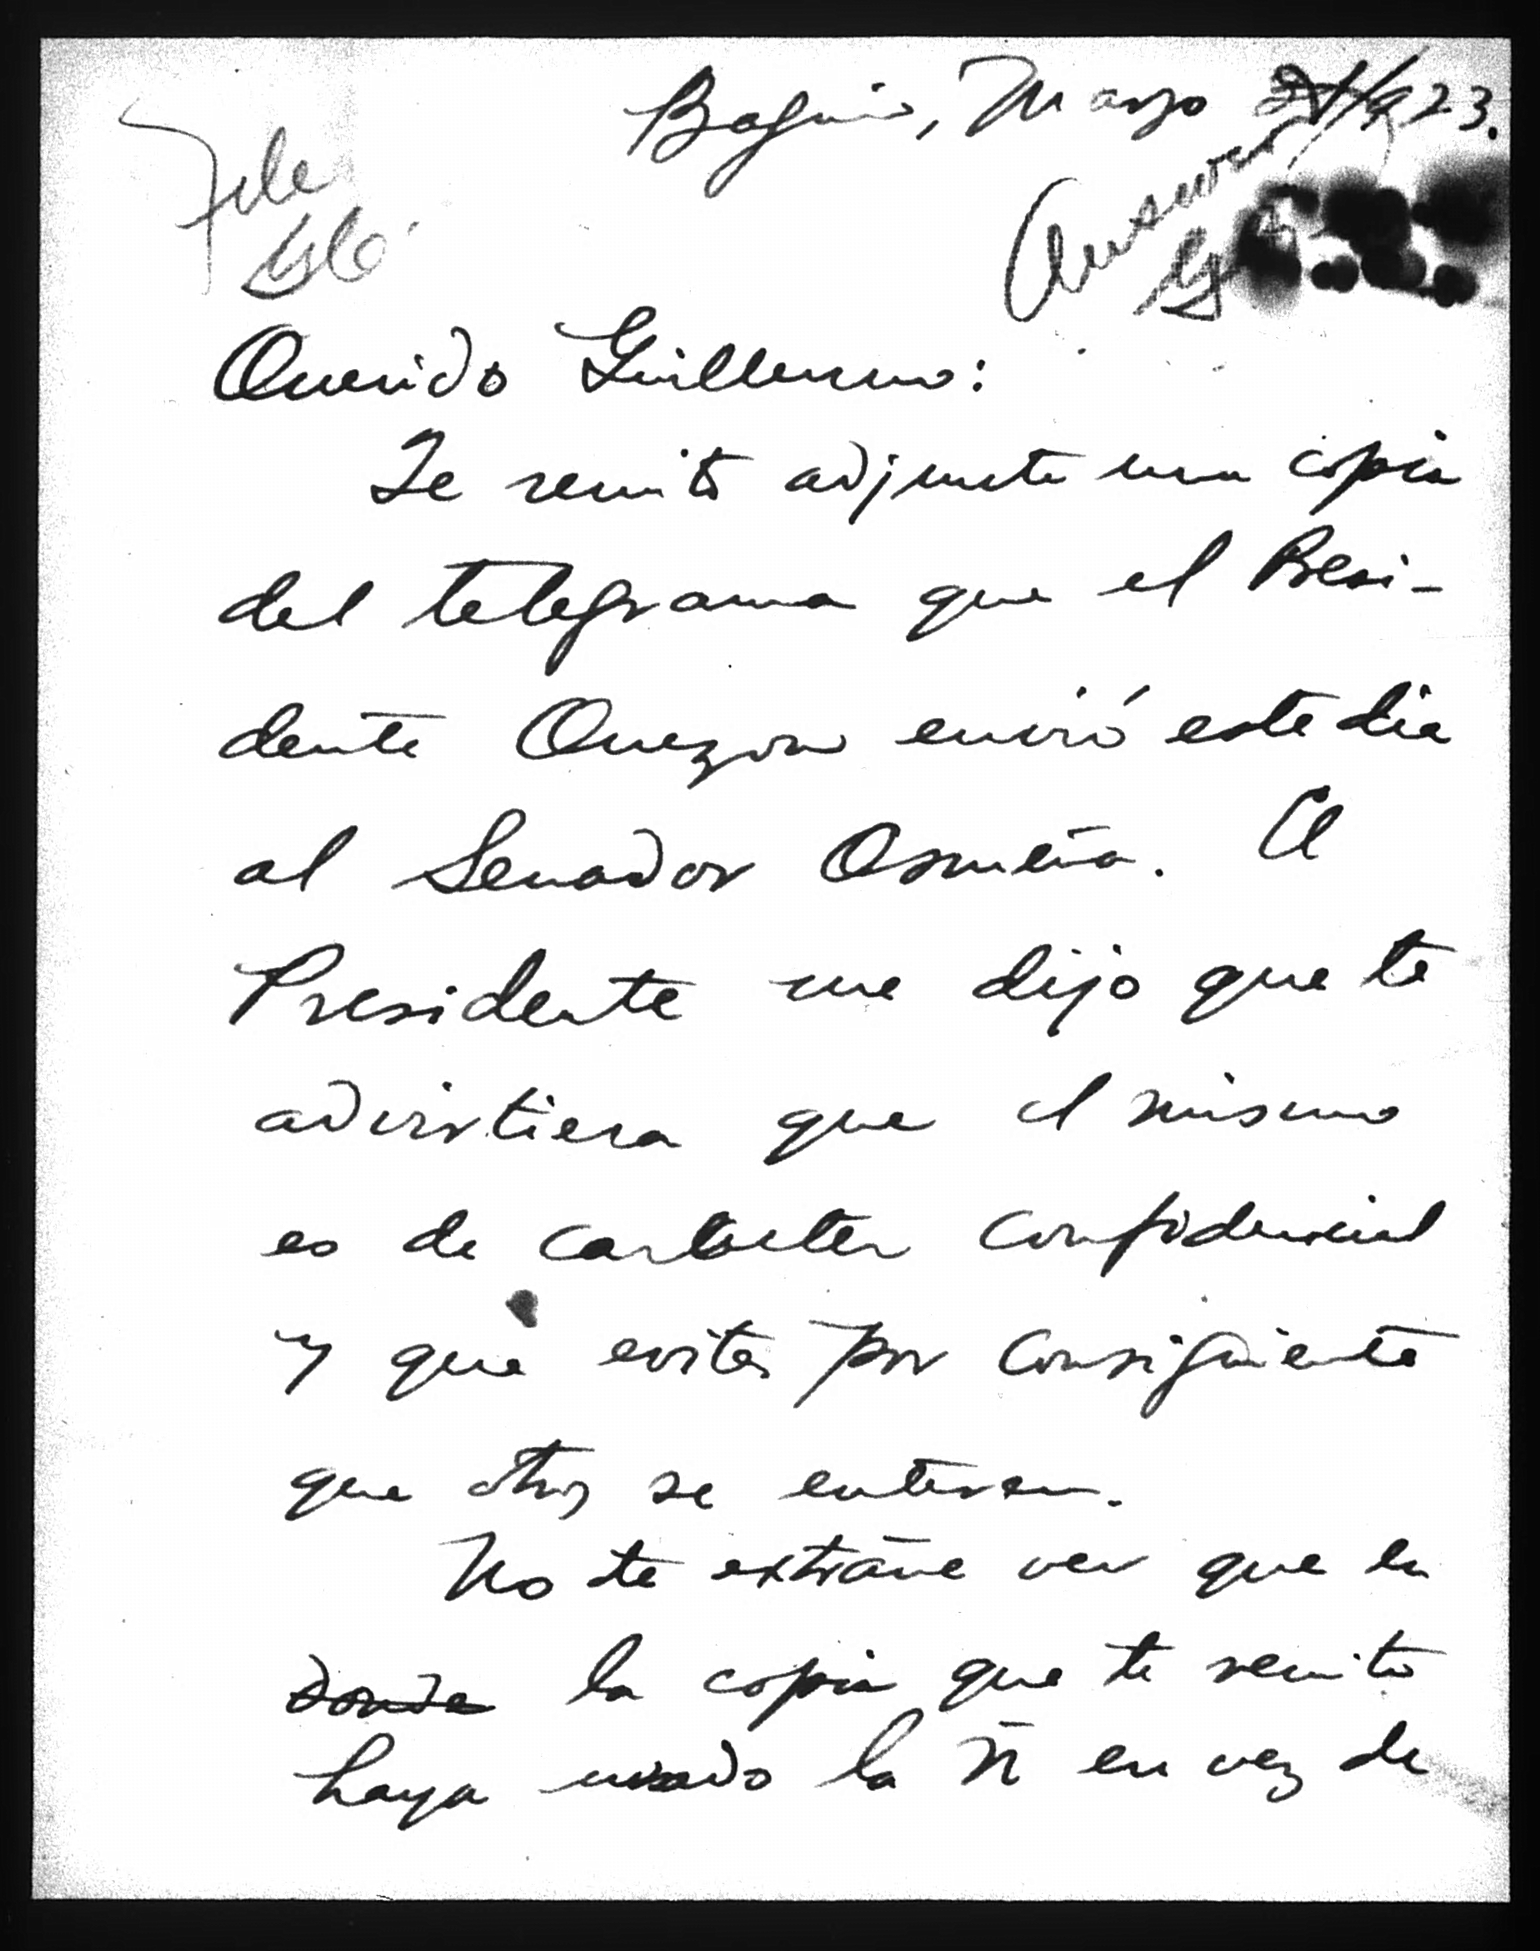 Baguio, Marzo 21/923.
File
Answered
Querido Guillermo:
Te remito adjunta una copia
del telegrama que el Presi-
dente Quezon envió este dia
al Senador Osmeña. El
Presidente me dijo que te
advirtiera que el mismo
es de carácter confidencial
y que evites por consiguiente
que otros se enteren.
No te extrañe ver que en
donde la copia que te remito
haya usado la Ñ en vez de